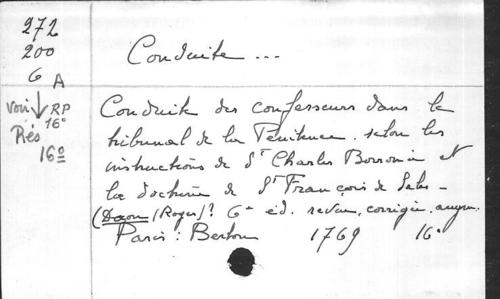 272
200
6 A
Conduite ...
voir RP
16º
Rés
16º
Conduite des confesseurs dans le
tribunal de la Pénitence. selon les
instructions de St Charles Borromée et
la doctrine de St François de Sales -
(Daon (Roger)? 6e éd. revue, corrigée, augm.
Paris : Berton 1769 16º